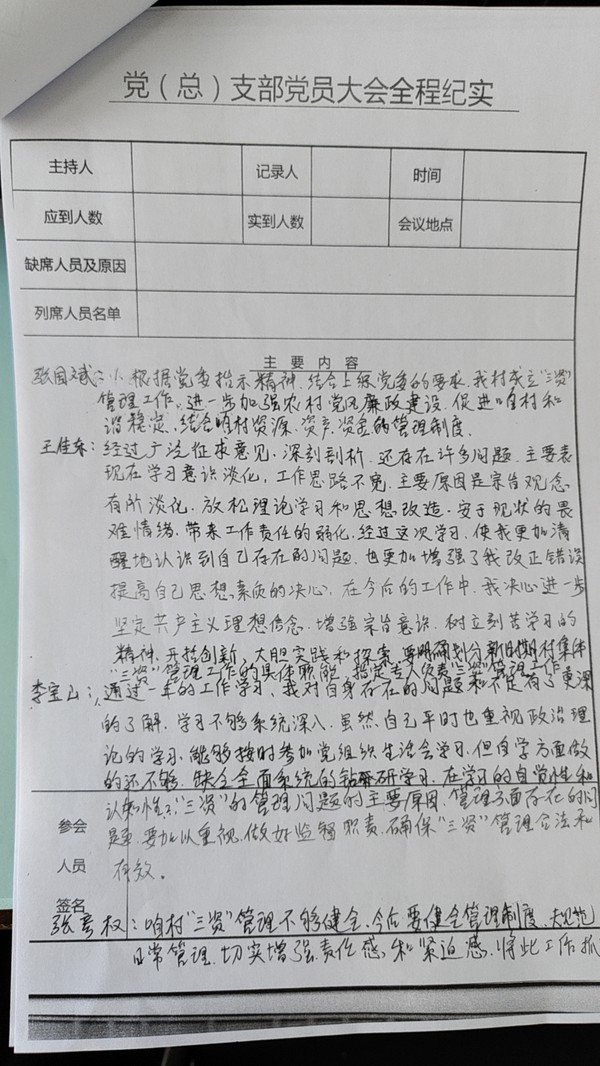 党（总）支部党员大会全程纪实
主持人 记录人 时间
应到人数 实到人数 会议地点
缺席人员及原因
列席人员名单
主要内容
张国斌：1、根据党委指示精神、结合上级党委的要求、我村成立"三资"
管理工作、进一步加强农村党风廉政建设、促进咱村和
谐稳定、结合咱村资源、资产、资金的管理制度.
王佳东：经过广泛征求意见、深刻剖析、还存在许多问题、主要表
现在学习意识淡化，工作思路不宽、主要原因是宗旨观念
有所淡化、放松理论学习和思想改造、安于现状的畏
难情绪、带来工作责任的弱化、经过这次学习、使我更加清
醒地认识到自己存在的问题、也更加增强了我改正错误
提高自己思想素质的决心、在今后的工作中、我决心进一步
坚定共产主义理想信念、增强宗旨意识、树立刻苦学习的
精神、开拓创新、大胆实践和探索、要明确划分新时期村集体
"三资"管理工作的具体职能、指定专人负责"三资"管理工作
李宝山：通过一年的工作学习、我对自身存在的问题和不足有了更深
的了解、学习不够系统深入、虽然自己平时也重视政治理
论的学习、能够按时参加党组织生活会学习、但自学方面做
的还不够、缺乏全面系统的钻研学习、在学习的自觉性和
认知性、"三资"的管理问题的主要原因、管理方面存在的问
题、要加以重视、做好监督职责、确保"三资"管理合法和
有效。
参会
人员
签名
张彦权：咱村"三资"管理不够健全、今后要健全管理制度、规范
日常管理、切实增强责任感和紧迫感、将此工作抓